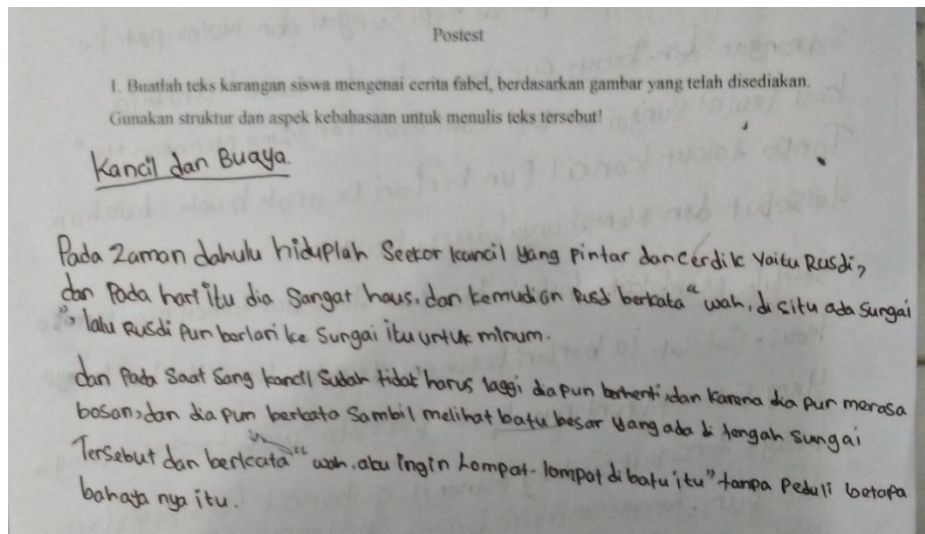 Postest
1. Buatlah teks karangan siswa mengenai cerita fabel, berdasarkan gambar yang telah disediakan.
Gunakan struktur dan aspek kebahasaan untuk menulis teks tersebut!
Kancil dan Buaya.
Pada Zaman dahulu hiduplah Seekor kancil yang pintar dan cerdik yaitu Rusdi,
dan Pada hari itu dia Sangat haus, dan kemudian Rusdi berkata "wah, di situ ada sungai
", lalu Rusdi Pun berlari ke Sungai itu untuk minum.
dan Pada Saat Sang kancil Sudah tidak harus laggi dia pun berhenti, dan karena dia pun merasa
bosan, dan dia pun berkata Sambil melihat batu besar yang ada di tengah sungai
Tersebut dan berkata "wah, aku ingin Lompat-lompat di batu itu" tanpa Peduli betapa
bahaya nya itu.